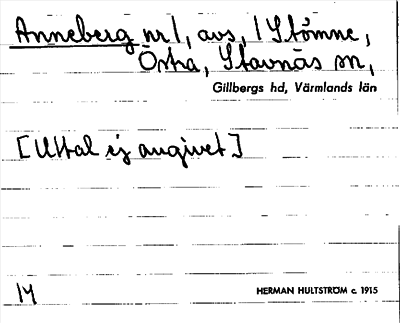 Anneberg nr 1, avs, / Stömne,
Östra, Stavnäs sn,
Gillbergs hd, Värmlands län
[Uttal ej angivet]
14
HERMAN HULTSTRÖM c. 1915